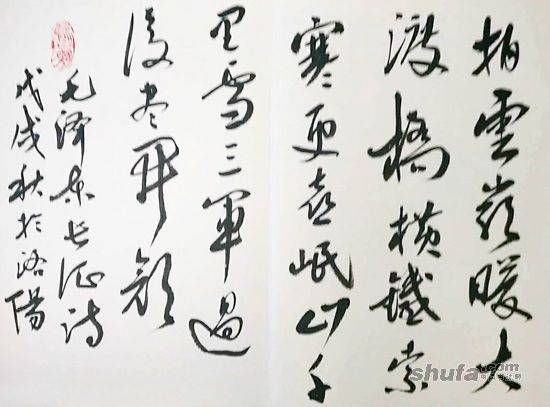 拍雲崖暖大
渡橋横鐵索
寒更喜岷山千
里雪三軍過
後盡開顏
毛泽东长征诗
戊戌秋於洛陽
shufa
.com